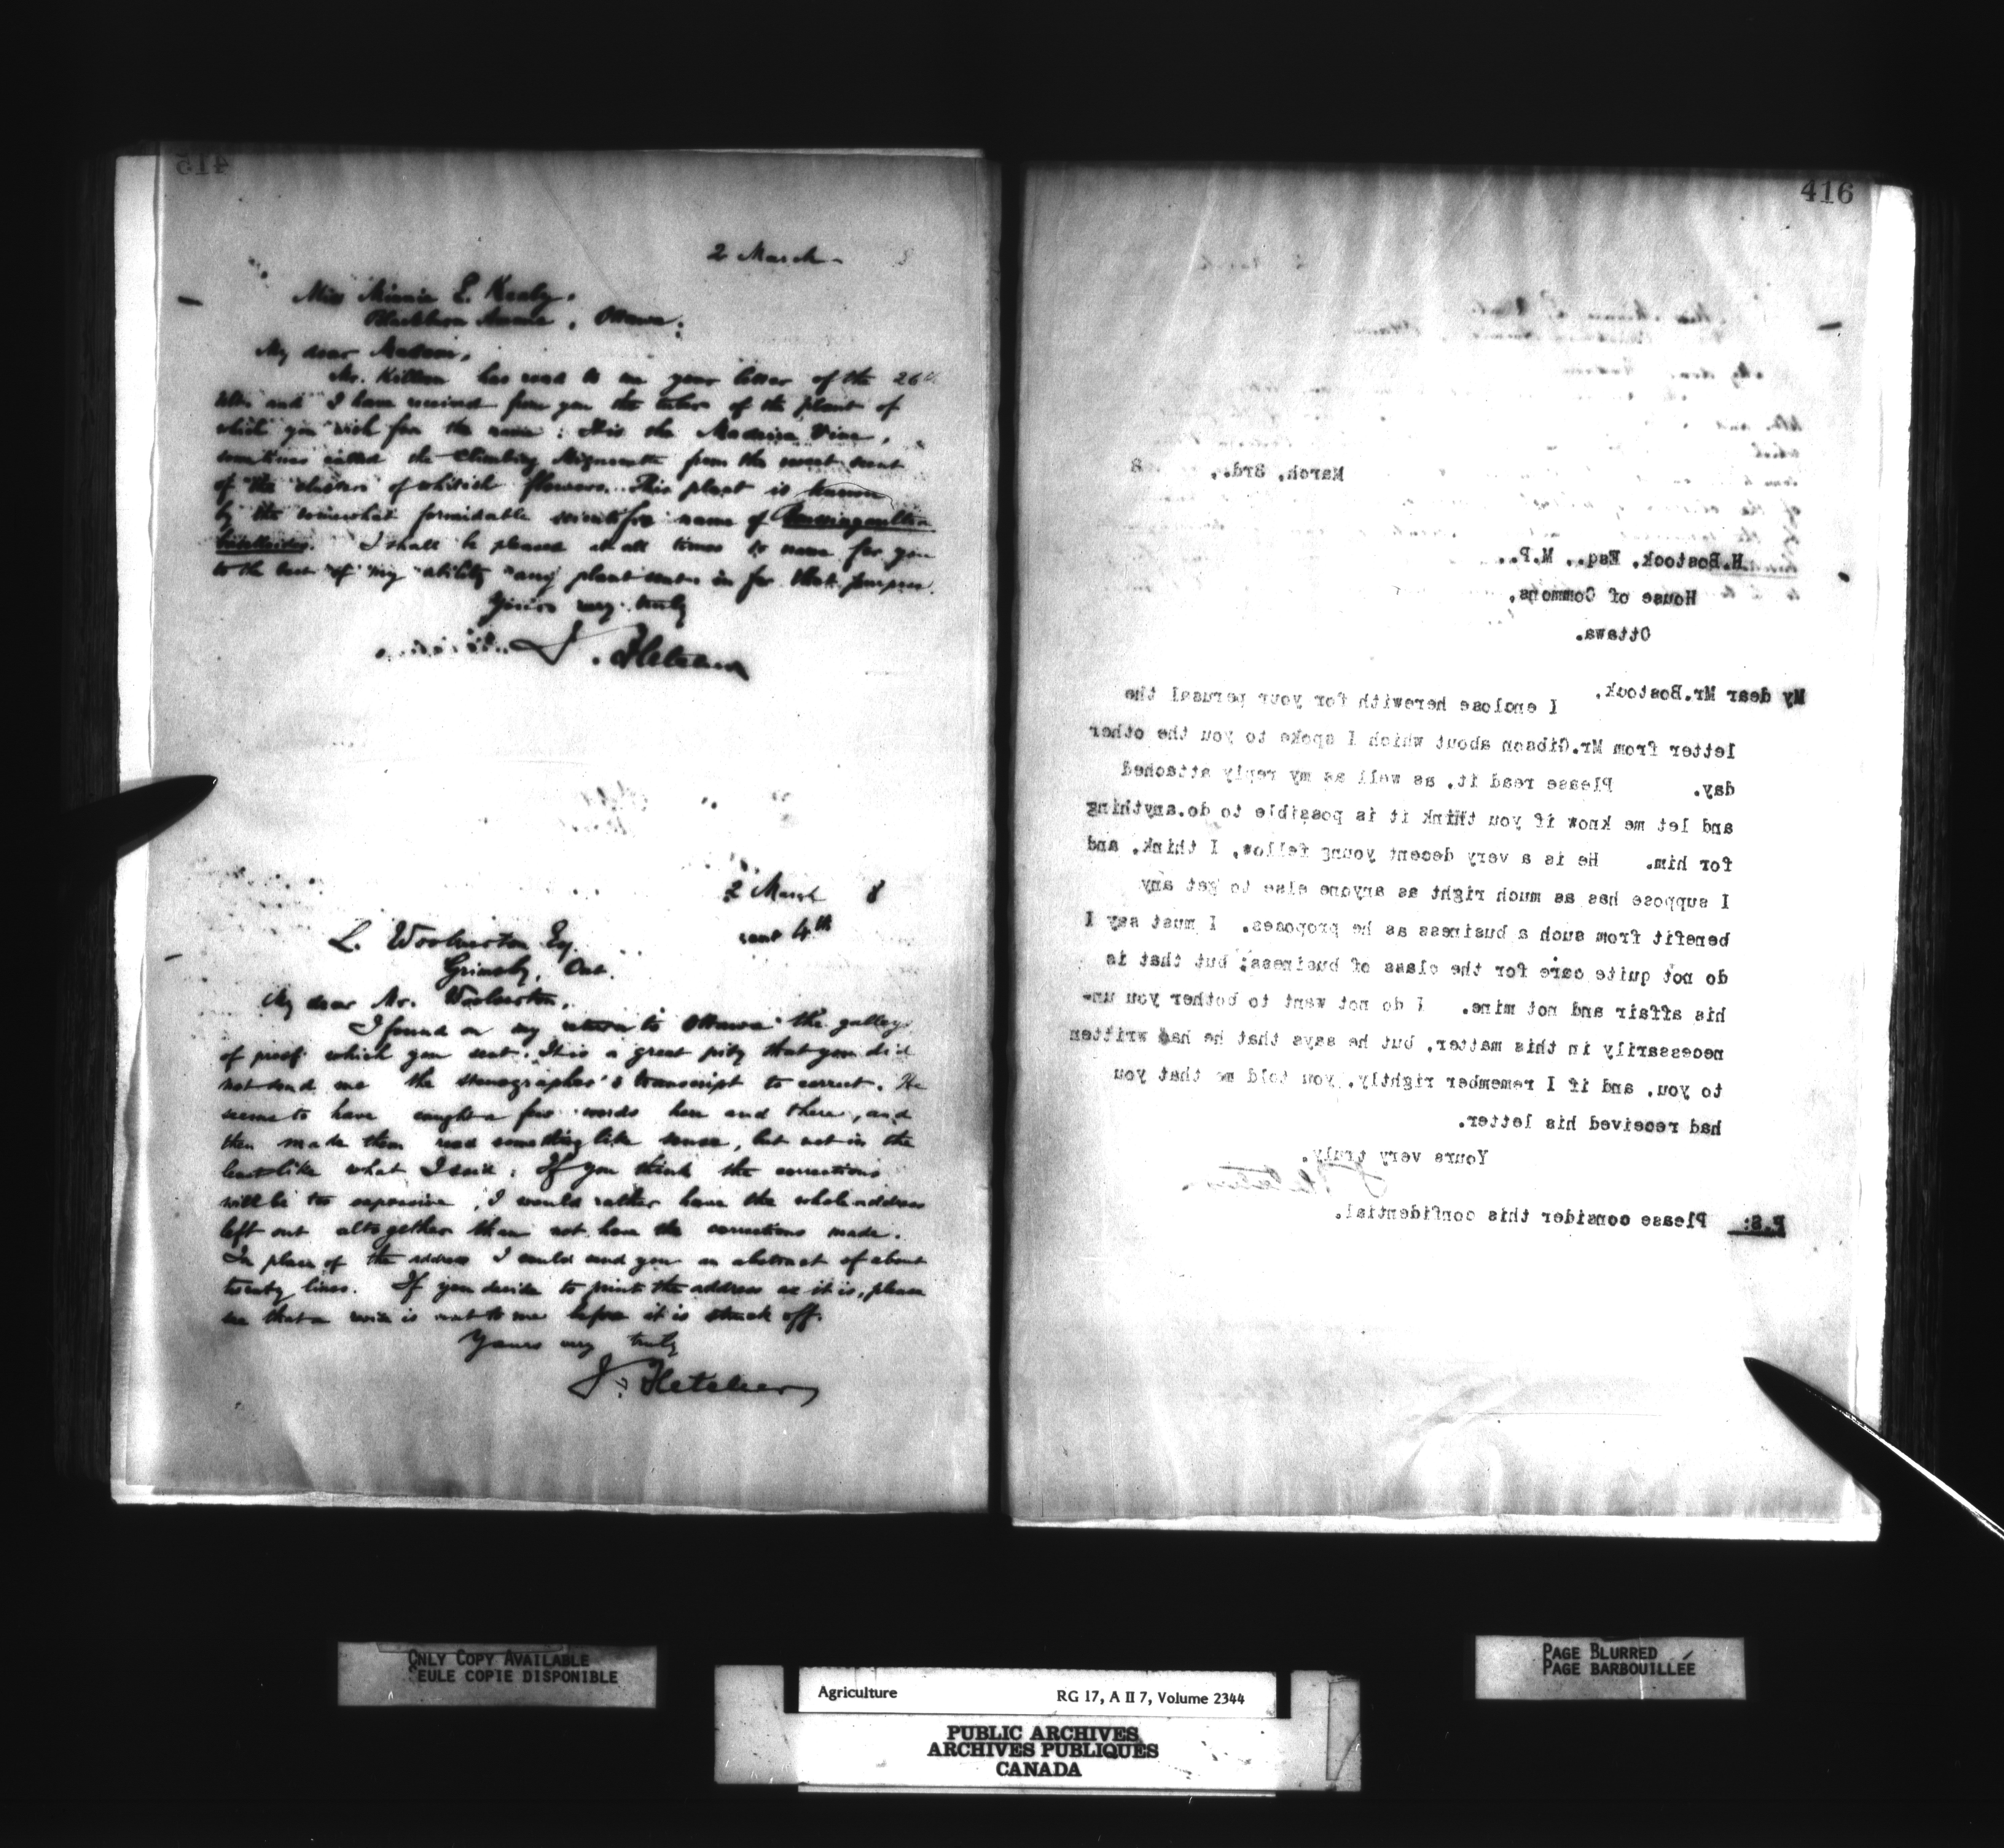 415
2 March
Miss Minnie E. Kealy,
Blackburn Avenue, Ottawa:
My dear Madam,
Mr. has read to me your letter of the 26th
ulto. and I have received from you the tuber of the plant of
which you wish for the name: It is the Madeira Vine,
sometimes called the Climbing Mignonette from the sweet scent
of the clusters of whitish flowers. This plant is known
by the somewhat formidable scientific name of Boussingaultia
baselloides. I shall be pleased at all times to name for you
to the best of my ability any plant sent in for that purpose.
Yours very truly
J. Fletcher
2 March 8
sent 4th
L. Woolverton Esq.
Grimsby, Ont.
My dear Mr. Woolverton,
I found on my return to Ottawa the galley
of proof which you sent. It is a great pity that you did
not send me the stenographer's transcript to correct. He
seems to have caught a few words here and there, and
then made them read something like sense, but not in the
least like what I said: If you think the corrections
will be too expensive, I would rather have the whole address
left out altogether than not have the corrections made.
In place of the address I could send you an abstract of about
twenty lines. If you decide to print the address as it is, please
see that a revise is sent to me before it is struck off.
Yours very truly
J. Fletcher
416
March, 3rd., 8
H.Bostock, Esq., M.P.,
House of Commons,
Ottawa.
My dear Mr.Bostock,
I enclose herewith for your perusal the
letter from Mr.Gibson about which I spoke to you the other
day. Please read it, as well as my reply attached
and let me know if you think it is possible to do.anything
for him. He is a very decent young fellow, I think, and
I suppose has as much right as anyone else to get any
benefit from such a business as he proposes. I must say I
do not quite care for the class of business; but that is
his affair and not mine. I do not want to bother you un-
necessarily in this matter, but he says that he had written
to you, and if I remember rightly, you told me that you
had received his letter.
Yours very truly,
J. Fletcher
P.S: Please consider this confidential.
ONLY COPY AVAILABLE
SEULE COPIE DISPONIBLE
PAGE BLURRED
PAGE BARBOUILLÉE
Agriculture RG 17, A II 7, Volume 2344
PUBLIC ARCHIVES
ARCHIVES PUBLIQUES
CANADA